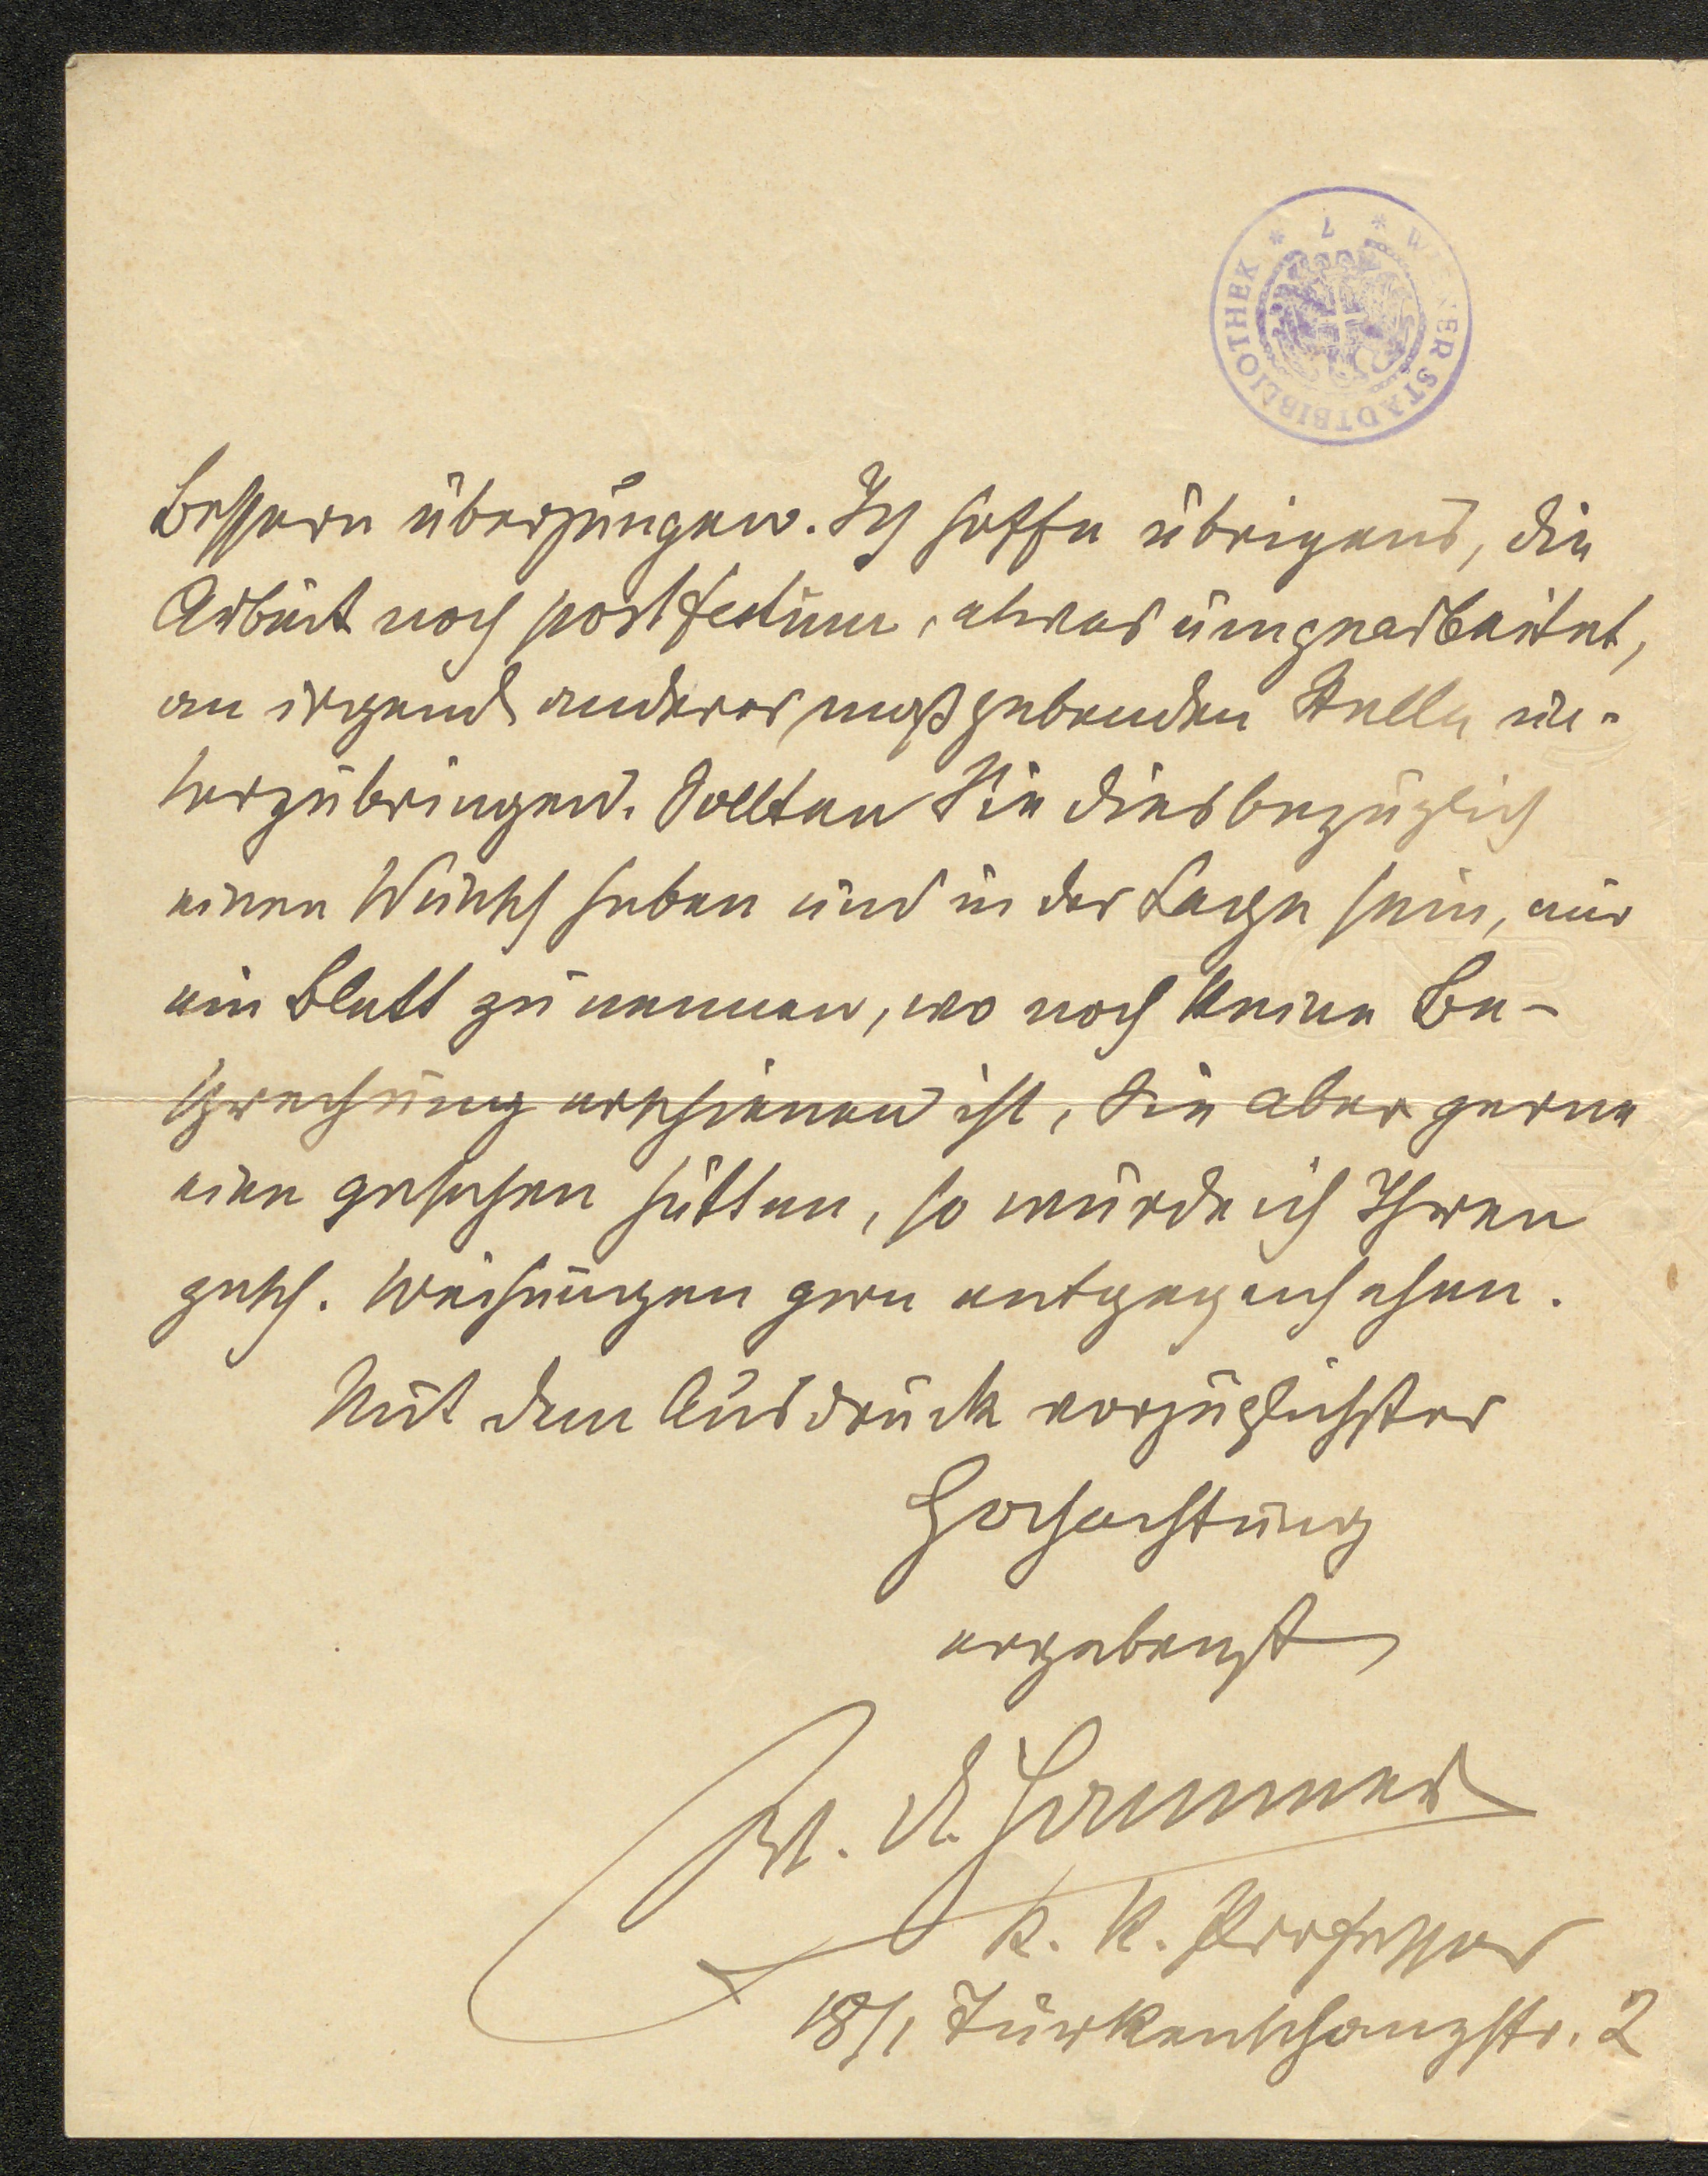 WIENER STADTBIBLIOTHEK * 7 *
Bessern überzeugen. Ich hoffe übrigens, die
Arbeit noch post festum, etwas umgearbeitet,
an irgend anderer maßgebenden Stelle un-
terzubringen. Sollten Sie diesbezüglich
einen Wunsch haben und in der Lage sein, mir
ein Blatt zu nennen, wo noch keine Be-
sprechung erschienen ist, Sie aber gerne
eine gesehen hätten, so würde ich Ihren
gesch. Weisungen gern entgegensehen.
Mit dem Ausdruck vorzüglichster
Hochachtung
ergebenst
W. A. Hammer
K. K. Professor
18/1 Türkenschanzstr. 2